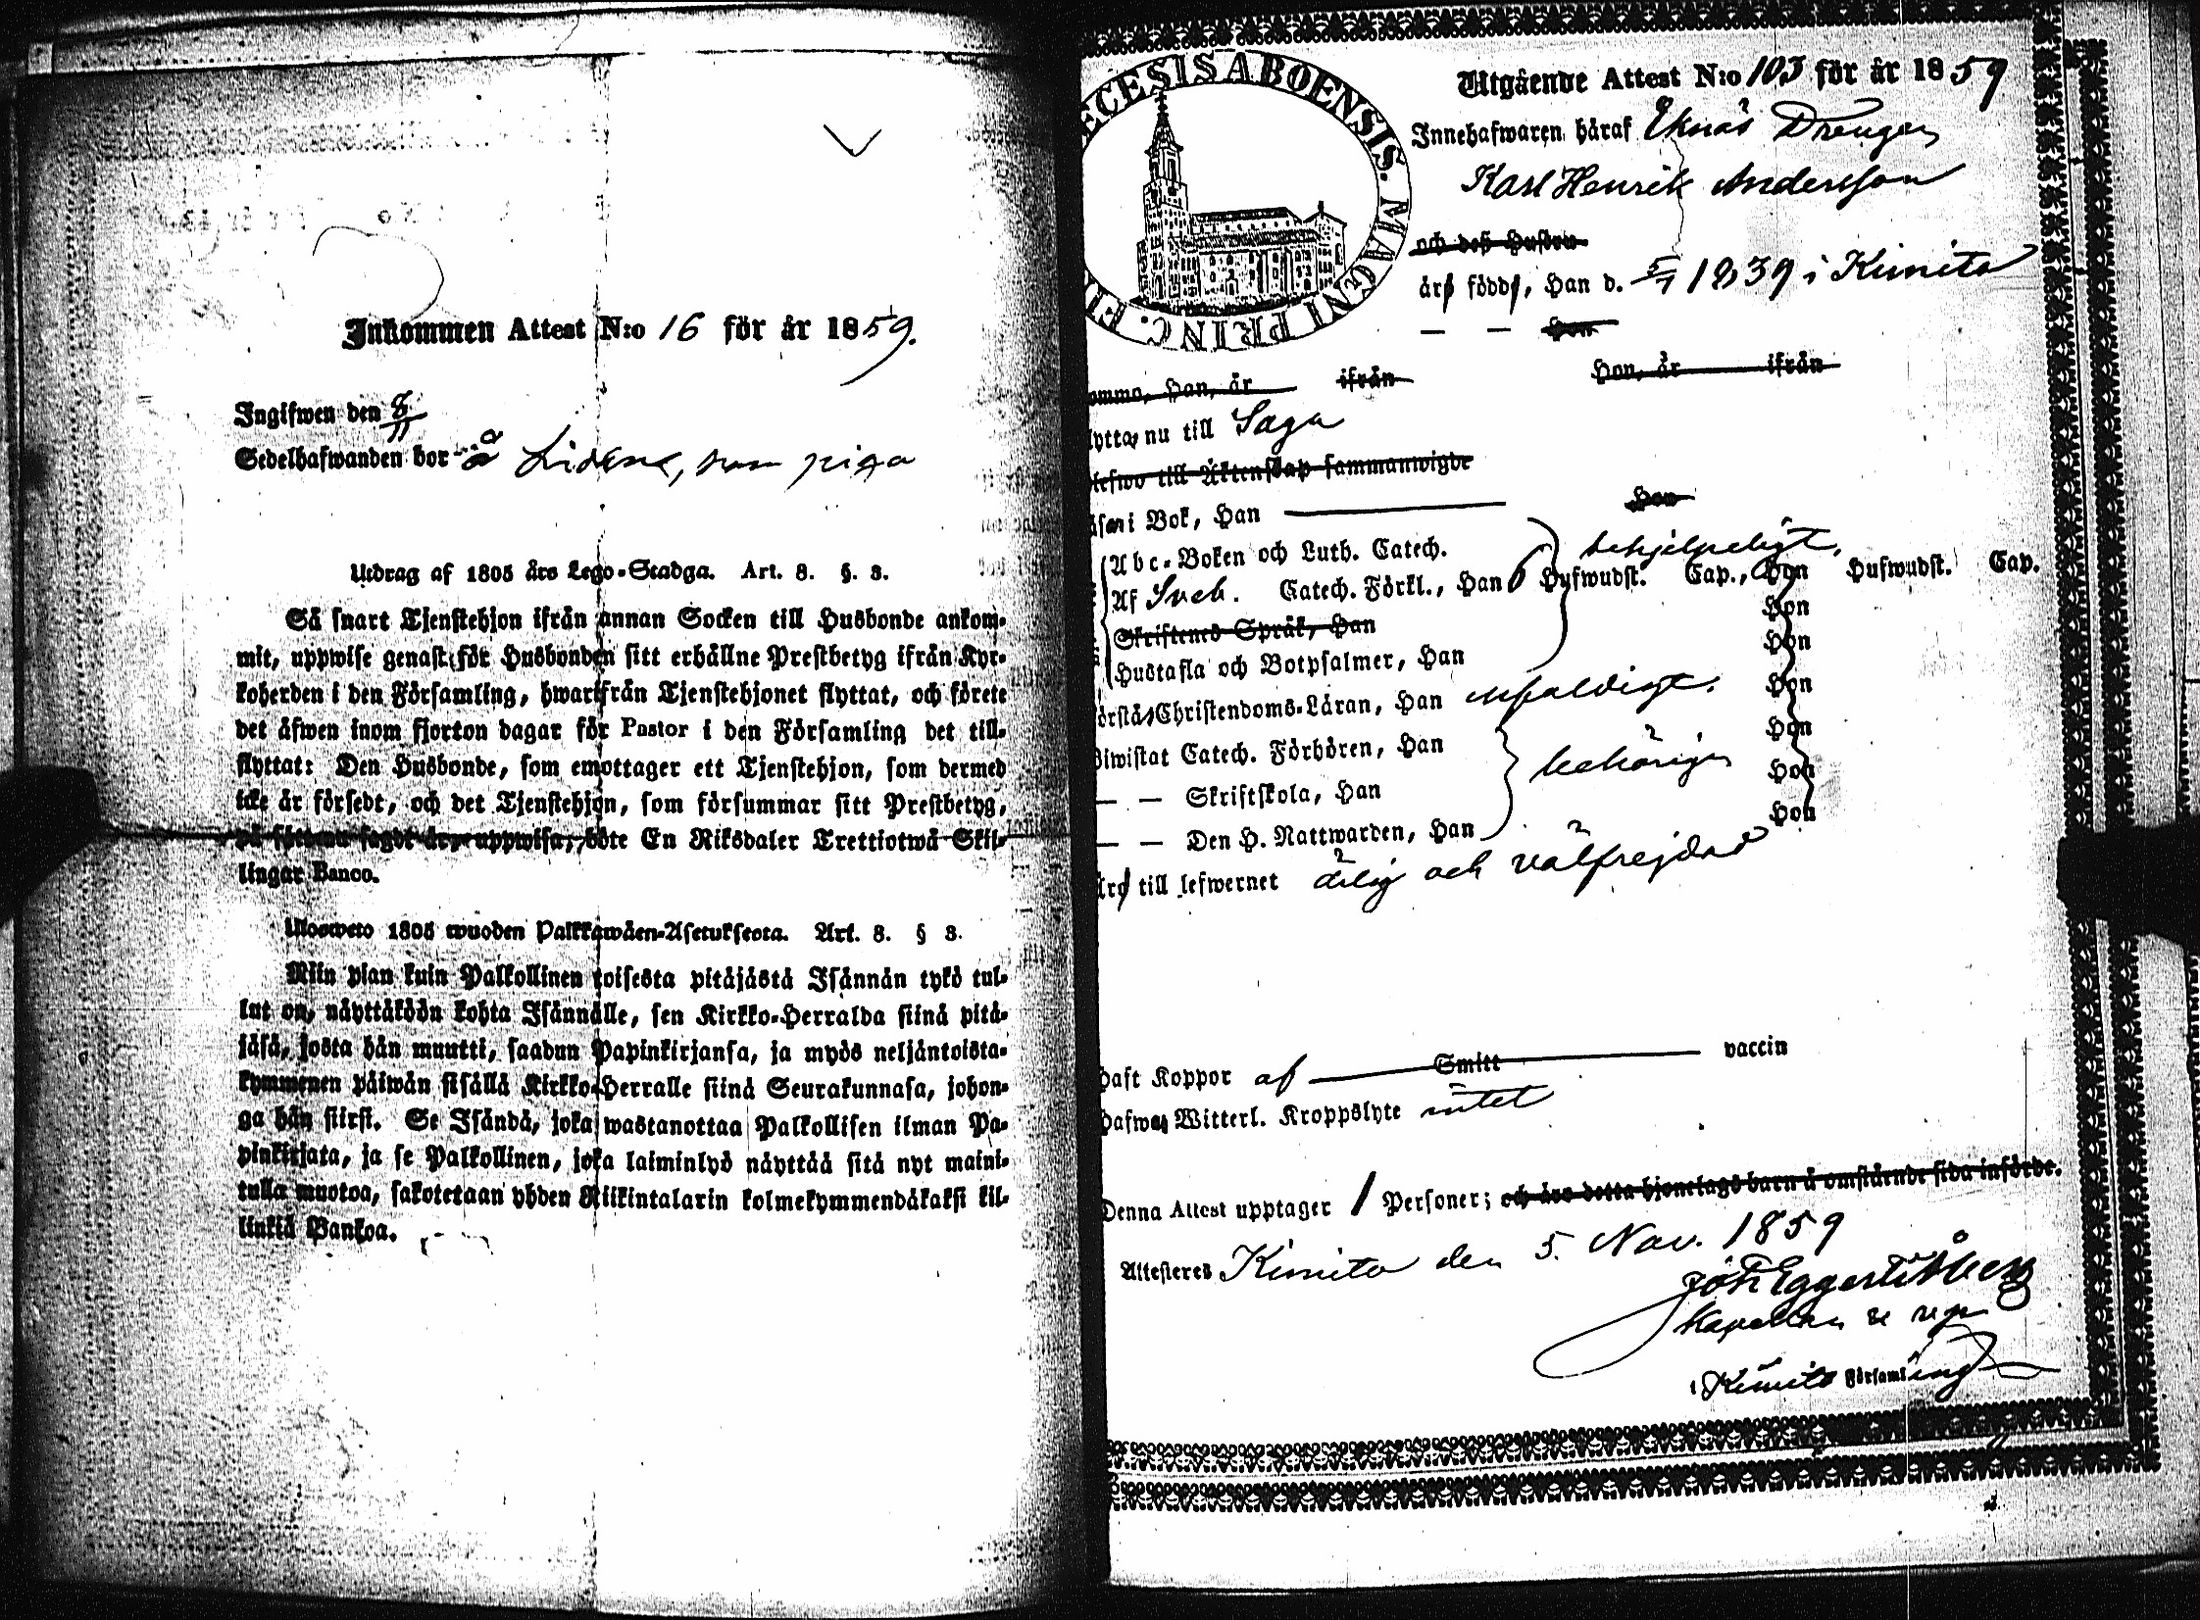 Inkommen Attest N:o 16 för år 1859.
Ingifwen den 8/11
Sedelhafwanden bor å Lidena, som piga
Utdrag af 1805 års Lego-Stadga. Art. 8. §. 3.
Så snart Tjenstehjon ifrån annan Socken till Husbonde ankom-
mit, uppwise genast för Husbonden sitt erhållne Prestbetyg ifrån Kyr-
koherden i den Församling, hwarifrån Tjenstehjonet flyttat, och förete
det äfwen inom fjorton dagar för Pastor i den Församling det till-
flyttat: Den Husbonde, som emottager ett Tjenstehjon, som dermed
icke är försedt, och det Tjenstehjon, som försummar sitt Prestbetyg,
på sätt nu sagdt är, uppwisa, böte En Riksdaler Trettiotwå Skil-
lingar Banco.
Ulosweto 1805 wuoden Palkkawäen-Asetuksesta. Art. 8. § 3.
Niin pian kuin Palkollinen toisesta pitäjästä Isännän tykö tul-
lut on, näyttäköön kohta Isännälle, sen Kirkko-Herralda siinä pitä-
jäsä, josta hän muutti, saadun Papinkirjansa, ja myös neljäntoista-
kymmenen päiwän sisällä Kirkko-Herralle siinä Seurakunnasa, johon-
ga hän siirsi. Se Isändä, joka wastanottaa Palkollisen ilman Pa-
pinkirjata, ja se Palkollinen, joka laiminlyö näyttää sitä nyt maini-
tulla muotoa, sakotetaan yhden Riikintalarin kolmekymmendäkaksi kil-
linkiä Bankoa.
ECESIS ABOENSIS. MAGNI PRINC. FI
Utgående Attest N:o 103 för år 1859
Innehafwaren häraf Eknäs Drengen
Karl Henrik Andersson
och deß Hustru
äro födde, Han d. 5/7 1839 i Kimito
— — Hon
ommo, Han, år ifrån Hon, år ifrån
lytta nu till Sagu
lefwo till Äktenskap sammanwigde
äsa i Bok, Han Hon
Abc-Boken och Luth. Catech. behjelpeligt,
Af Sveb. Catech. Förkl., Han 6 Hufwudst. Cap., Hon Hufwudst. Cap.
Skriftenes Språk, Han Hon
Hustafla och Botpsalmer, Han Hon
örstå Christendoms-Läran, Han enfaldigt. Hon
Biwistat Catech. Förhören, Han Hon
— — Skriftskola, Han behörigen Hon
— — Den H. Nattwarden, Han Hon
Äro till lefwernet ärlig och välfrejdad
Haft Koppor af Smitt vaccin
Hafwa Witterl. Kroppslyte intet
Denna Attest upptager 1 Personer; och äro detta hjonelags barn å omstående sida införde.
Attesteres Kimito den 5. Nov. 1859
Kapellan
i Kimito Församling